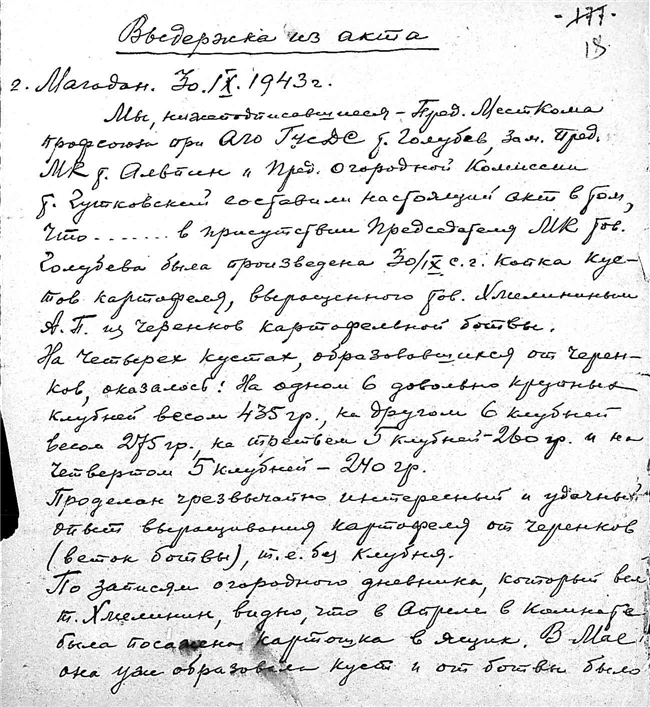 - 177 -
18
Выдержка из акта
г. Магадан. 30.IX.1943г.
Мы, нижеподписавшиеся - Пред. Месткома
профсоюза при АГО ГУСДС т. Голубев, зам. Пред.
МК т. Альпин и Пред. Огородной Комиссии
т. Гутковский составили настоящий акт в том,
что ....... в присутствии Председателя МК тов.
Голубева была произведена 30/IX с.г. копка кус-
тов картофеля, выращенного тов. Хмелининым
А.П. из черенков картофельной ботвы.
На четырех кустах, образовавшихся от черен-
ков, оказалось: На одном 6 довольно крупных
клубней весом 435 гр., на другом 6 клубней
весом 275 гр., на третьем 5 клубней - 260 гр. и на
четвертом 5 клубней - 240 гр.
Проделан чрезвычайно интересный и удачный
опыт выращивания картофеля от черенков
(веток ботвы), т.е. без клубня.
По записям огородного дневника, который вел
т. Хмелинин, видно, что в Апреле в комнате
была посажена картошка в ящик. В Мае
она уже образовала куст и от ботвы было